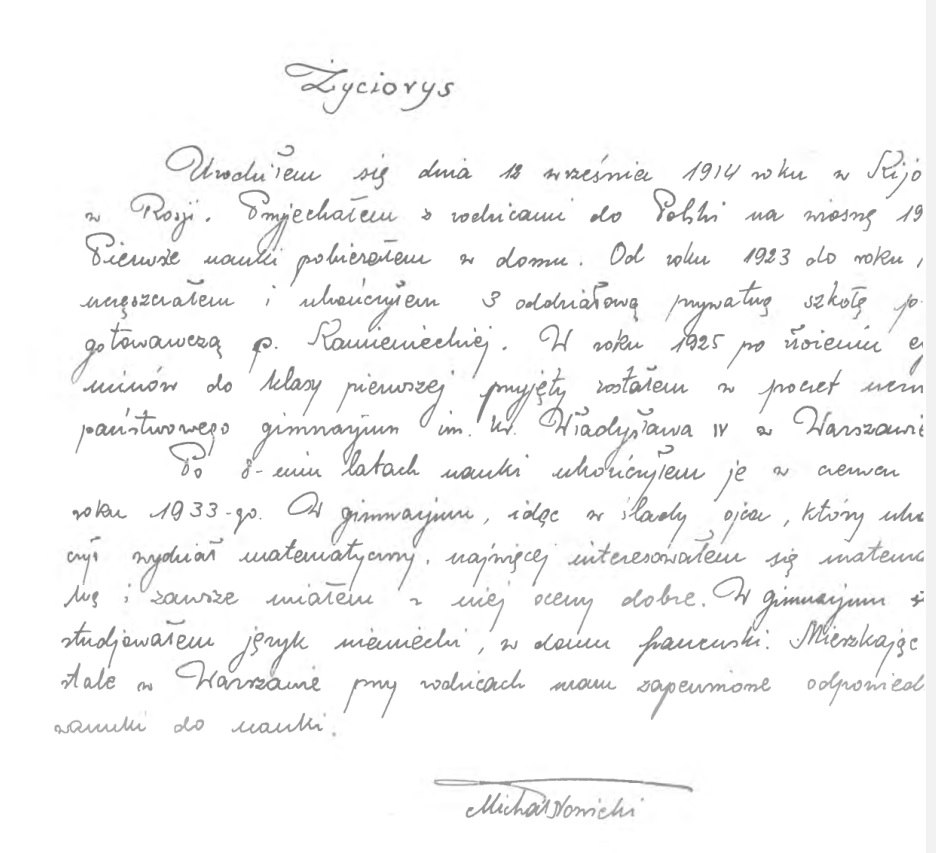 Życiorys
Urodziłem się dnia 12 września 1914 roku w Kijo
w Rosji. Przyjechałem z rodzicami do Polski na wiosnę 19
Pierwsze nauki pobierałem w domu. Od roku 1923 do roku
uczęszczałem i ukończyłem 3 oddziałową prywatną szkołę p
gotowawczą p. Kamienieckiej. W roku 1925 po złożeniu eg
minów do klasy pierwszej przyjęty zostałem w poczet uczn
państwowego gimnazjum im. kr. Władysława IV w Warszawie
Po 8-miu latach nauki ukończyłem je w czerwcu
roku 1933-go. W gimnazjum, idąc w ślady ojca, który uko
czył wydział matematyczny, najwięcej interesowałem się matema
kę i zawsze miałem z niej oceny dobre. W gimnazjum
studjowałem język niemiecki, w domu francuski. Mieszkając
stale w Warszawie przy rodzicach mam zapewnione odpowied
warunki do nauki.
Michał Nowicki